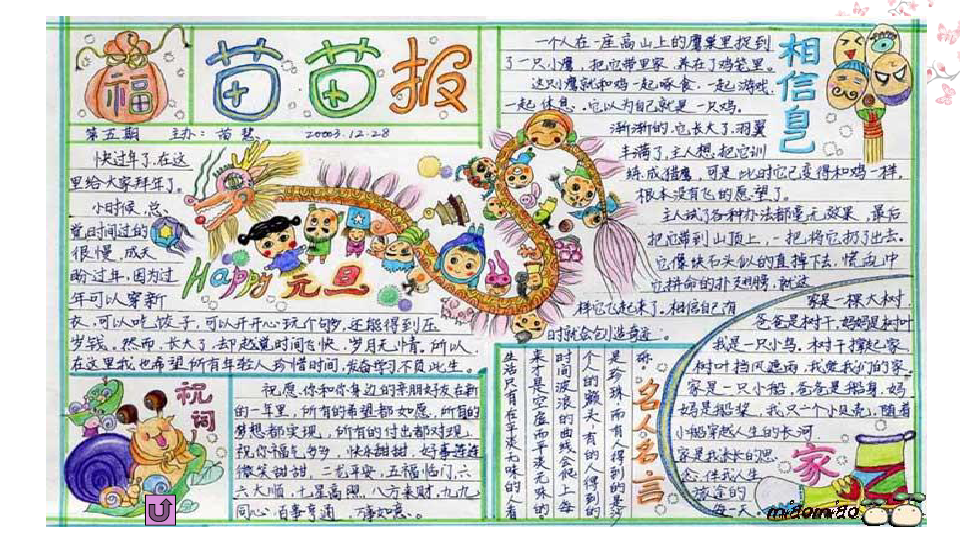 福
苗苗报
第五期 主办：苗 20003.12.28
快过年了,在这
里给大家拜年了。
小时候,总
觉时间过的
很慢,成天
盼过年,因为过
年可以穿新
衣,可以吃饺子,可以开开心玩个够,还能得到压
岁钱。然而,长大了,却越觉时间飞快,岁月无情,所以
在这里我也希望所有年轻人珍惜时间,奋学习不负此生。
Happy 元旦
祝词
祝愿,你和你身边的亲朋好友在新
的一年里,所有的希望都如愿,所有的
梦想都实现,所有的付出都兑现!
祝你福气多多,快乐甜甜,好事连连
微笑甜甜,二老平安,五福临门,六
六大顺,七星高照,八方来财,九九
同心,百事亨通,万事如意。
一个人在一座高山上的鹰巢里捉到
了一只小鹰,把它带回家,养在了鸡笼里。
这只鹰就和鸡一起啄食,一起游戏,
一起休息.它以为自己就是一只鸡.
渐渐的,它长大了,羽翼
丰满了,主人想把它训
练成猎鹰,可是,此时它已变得和鸡一样,
根本没有飞的愿望了。
主人试了各种办法都毫无效果,最后
把它带到山顶上,一把将它扔了出去。
它像块石头似的直掉下去,慌乱中
它拼命的扑翅膀,就这
样它飞起来了.相信自己有
时就会创造奇迹.
相信自己
名人名言
是珍珠,而有人得到的是
个人的额头,有的人得到的
时间波浪的曲线会爬上每
生活只有在平淡无味的
者
家是一棵大树.
爸爸是树干,妈妈是树叶
我是一只小鸟.树干撑起家
树叶挡风遮雨,我爱我们的家。
家是一只小船,爸爸是船身,妈
妈是船桨,我只一个小随着
小船穿越人生的长河
家是我
念,伴我人生
旅途的
每一天。
家
miaomiao